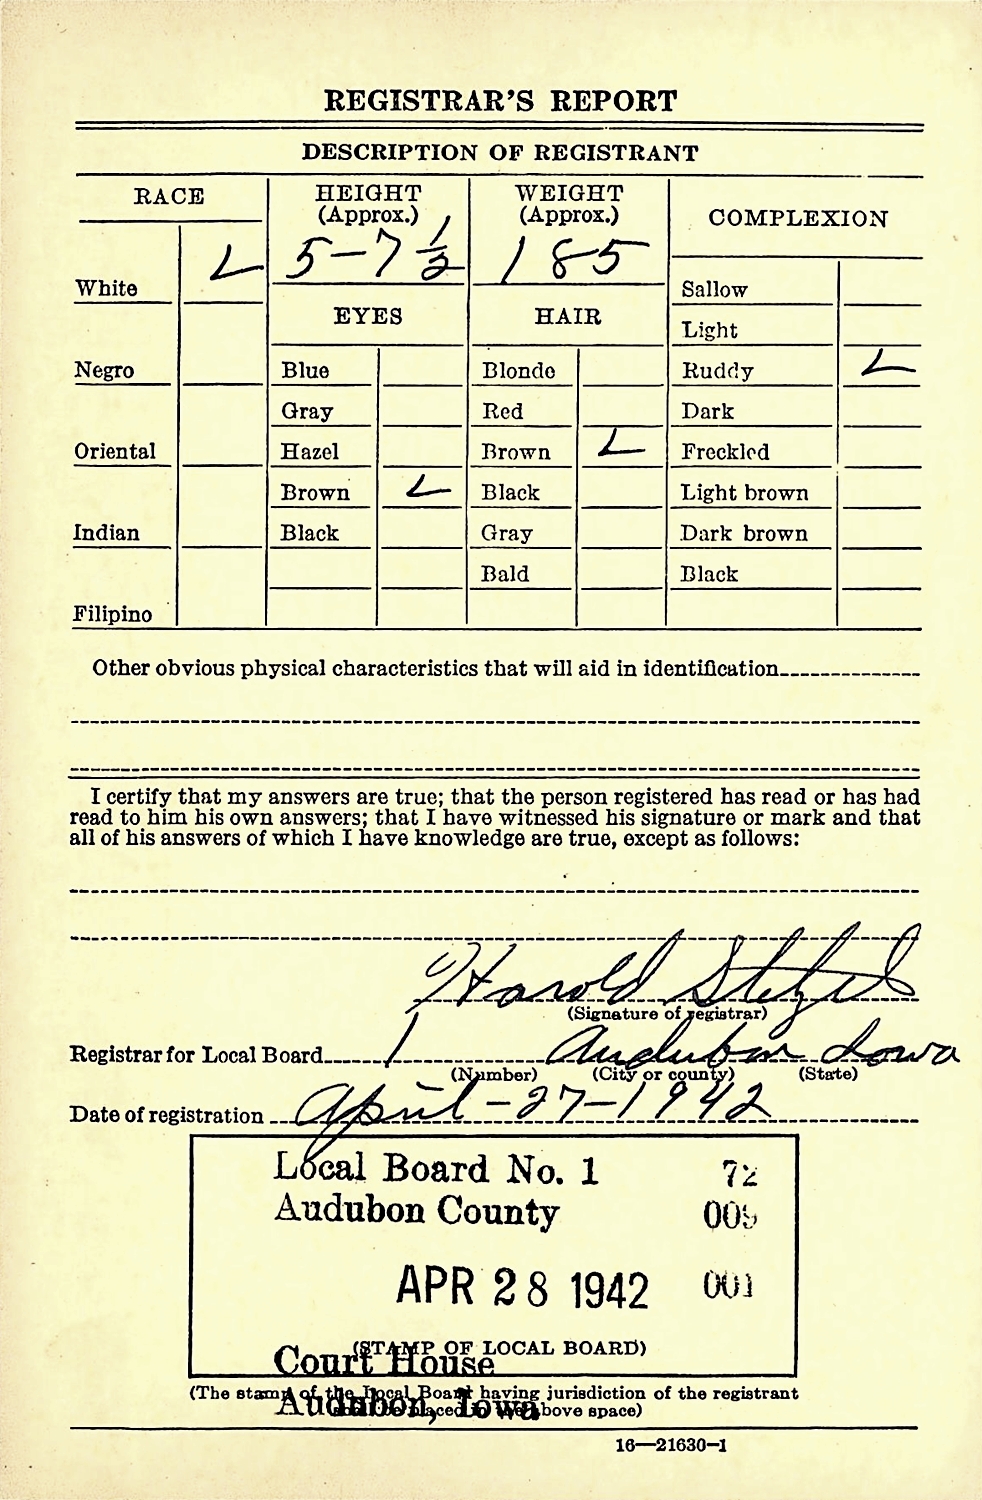 REGISTRAR'S REPORT
DESCRIPTION OF REGISTRANT
RACE
HEIGHT
(Approx.)
WEIGHT
(Approx.)
COMPLEXION
5-7 1/2
185
White
Sallow
EYES
HAIR
Light
Negro
Blue
Blonde
Ruddy
Gray
Red
Dark
Oriental
Hazel
Brown
Freckled
Brown
Black
Light brown
Indian
Black
Gray
Dark brown
Bald
Black
Filipino
Other obvious physical characteristics that will aid in identification
I certify that my answers are true; that the person registered has read or has had
read to him his own answers; that I have witnessed his signature or mark and that
all of his answers of which I have knowledge are true, except as follows:
Harold Stetzel
(Signature of registrar)
Registrar for Local Board 1 Audubon Iowa
(Number) (City or county) (State)
Date of registration April-27-1942
Local Board No. 1 72
Audubon County 009
APR 28 1942 001
(STAMP OF LOCAL BOARD)
Court House
(The stamp of the Local Board having jurisdiction of the registrant
shall be placed in the above space)
Audubon, Iowa
16—21630-1